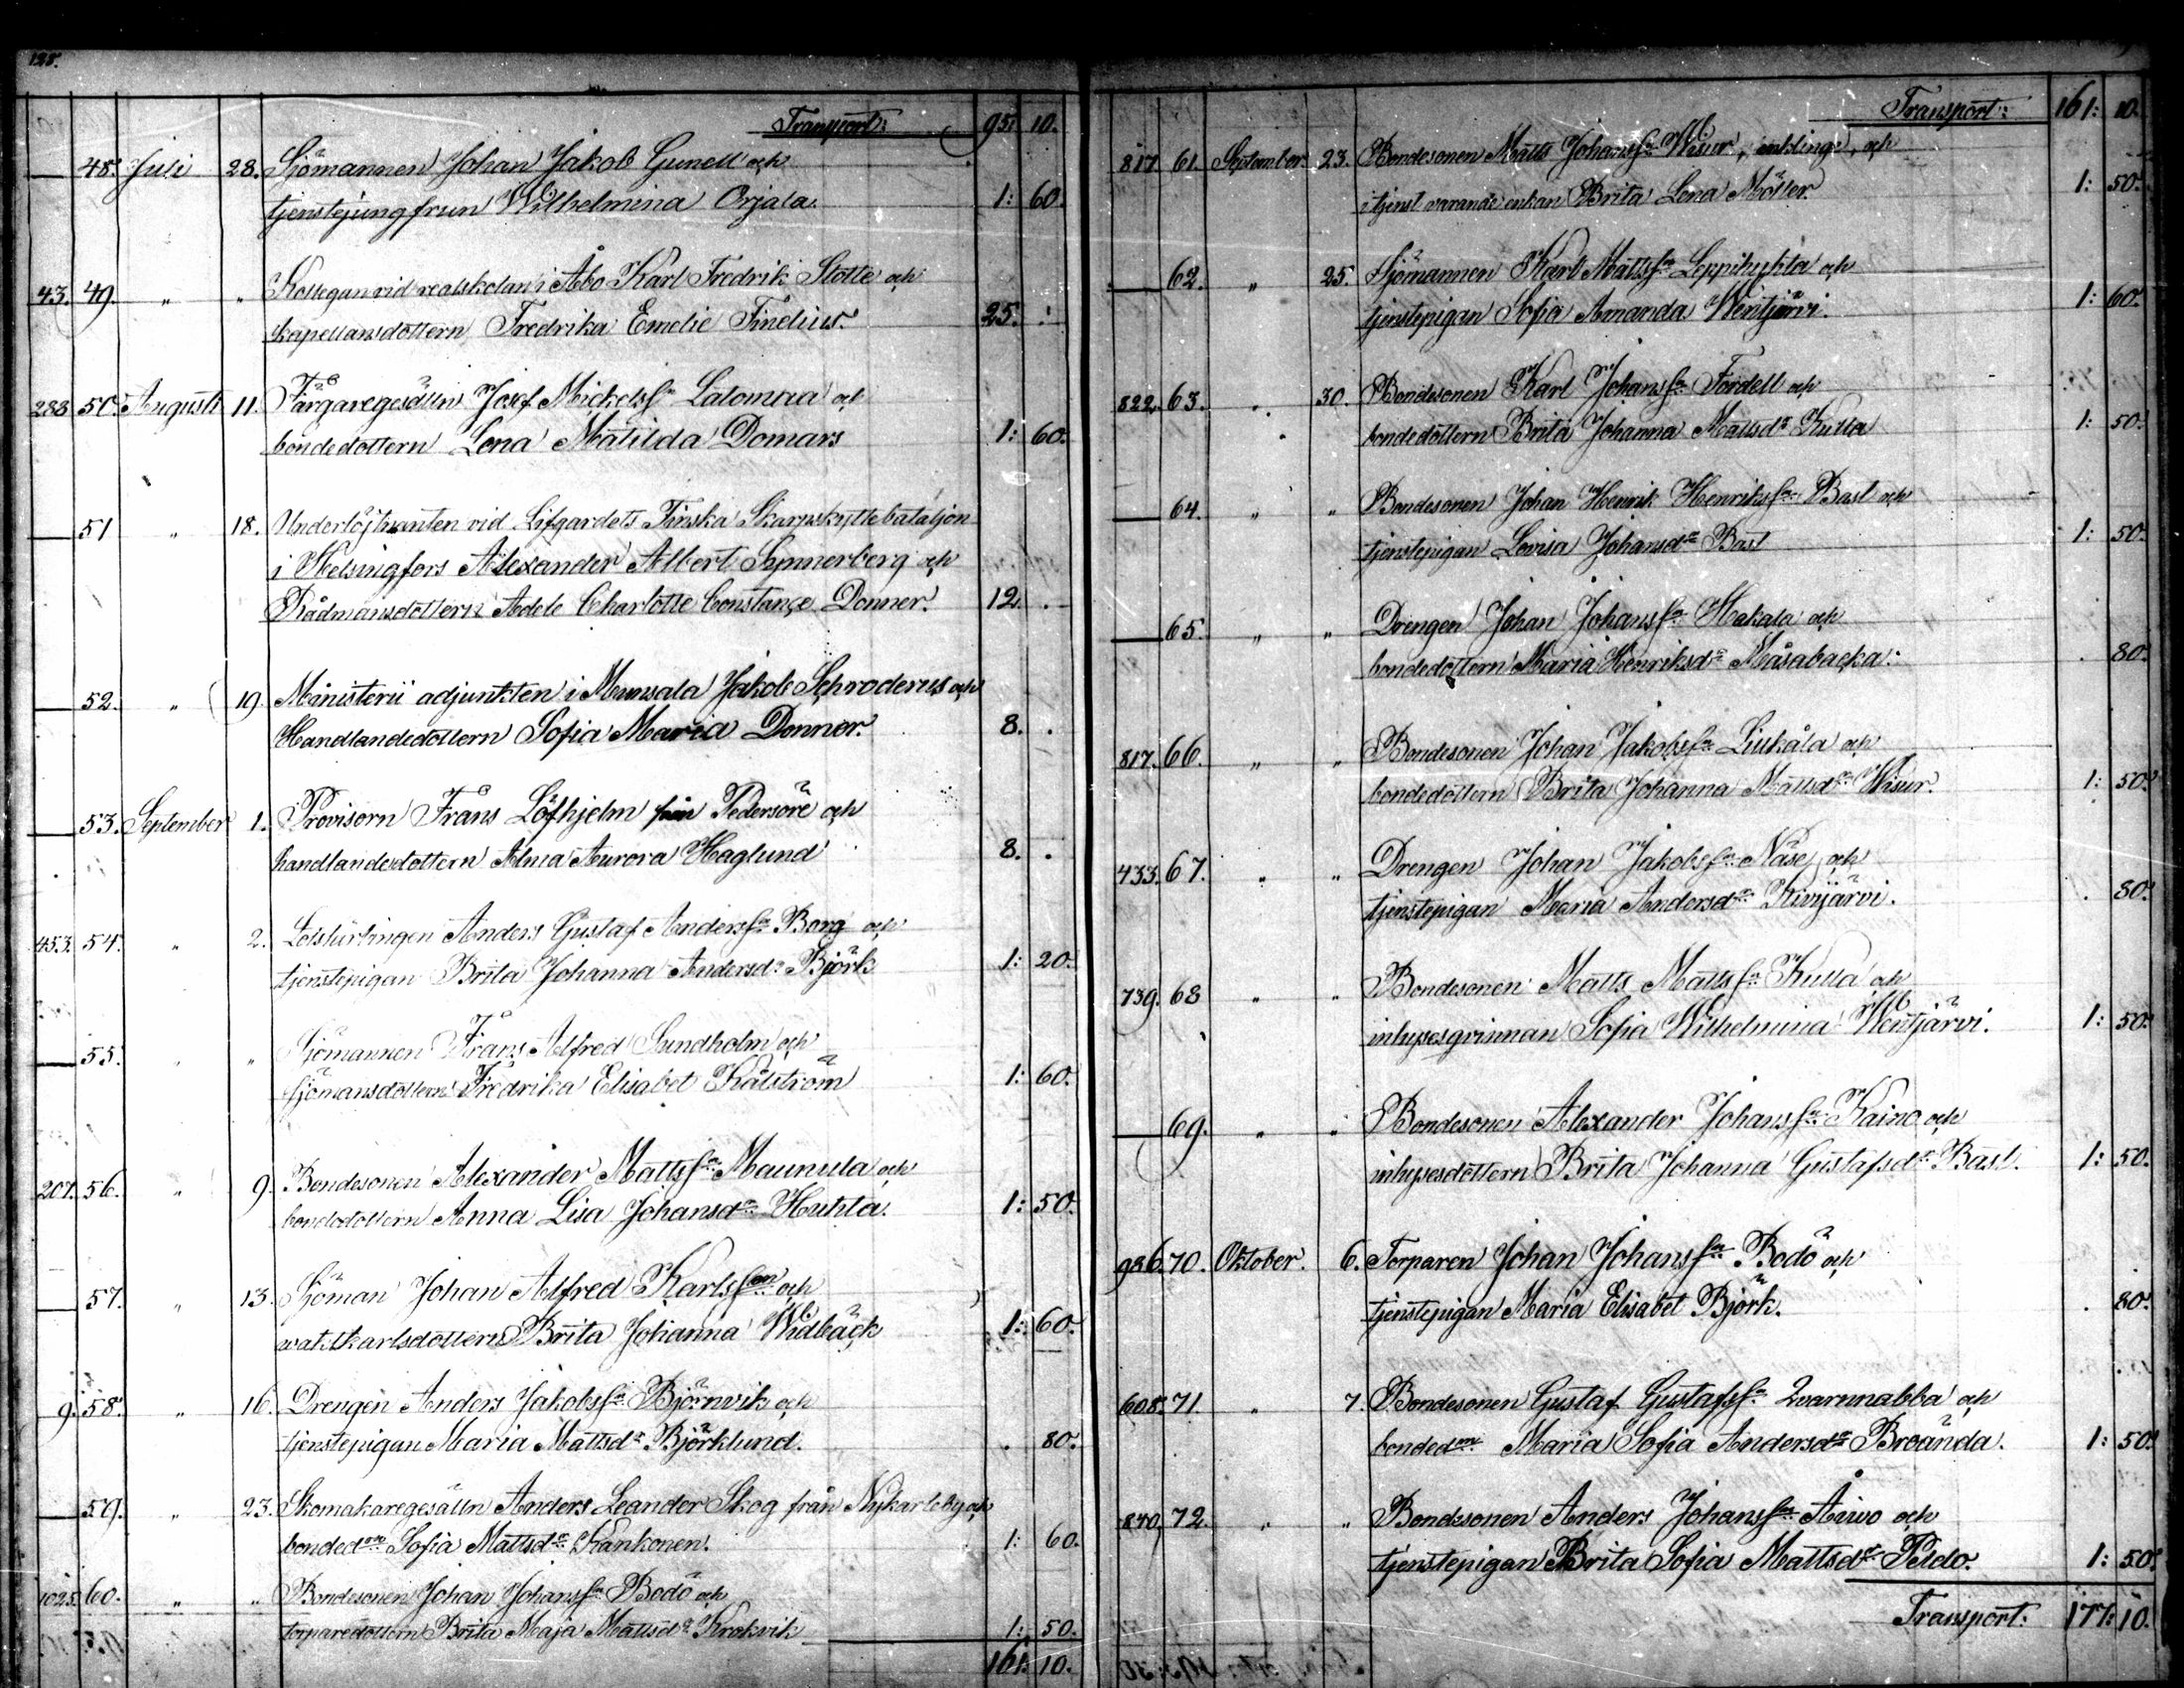 125.
Transport: 95. 10.
48. Juli 28. Sjömannen Johan Jakob Gunell och
tjenstejungfrun Wilhelmina Orjala. 1: 60.
43. 49. " " Kollegan vid realskolan i Åbo Karl Fredrik Stolte och
kapellansdottern Fredrika Emelie Finelius. 25. :
288 50. Augusti 11. Färgaregesälln Josef Mickelsson Latomaa och
bondedottern Lena Matilda Domars 1: 60.
51 " 18. Underlöjtnanten vid Lifgardets Finska Skarpskyttebataljon
i Helsingfors Alexander Albert Synnerberg och
Rådmansdottern Adele Charlotte Constançe Donner. 12. .
52. " 19 Ministerii adjunkten i Munsala Jakob Schroderus och
Handlandedottern Sofia Maria Donner. 8. .
53. September 1. Provisorn Frans Löfhjelm från Pedersöre och
handlandedottern Alma Aurora Haglund 8. .
453. 54. " 2. Anders Gustaf Anderssn Borg och
tjenstepigan Brita Johanna Andersdr Björk 1: 20.
55. " " Sjömannen Frans Alfred Sundholm och
sjömansdottern Fredrika Elisabet Kälström 1: 60.
207. 56. " 9. Bondesonen Alexander Mattssn Maunula och
bondedottern Anna Lisa Johansdr Huhta. 1: 50.
57. " 13. Sjöman Johan Alfred Karlsson och
vaktkarlsdottern Brita Johanna Widbäck 1: 60.
9. 58. " 16. Drengen Anders Jakobssn Björnvik och
tjenstepigan Maria Mattsdr Björklund. . 80.
59. " 23. Skomakaregesälln Anders Leander Skog från Nykarleby och
bondedrn Sofia Mattsdr Kankonen. 1: 60.
1025. 60. " " Bondesonen Johan Johanssn Bodö och
torparedottern Brita Maja Mattsdr Krokvik 1: 50.
161: 10.
Transport: 161: 10.
817. 61. September 23. Bondesonen Matts Johanssn Wisur, enkling, och
i tjenst varande enkan Brita Lena Möller. 1: 50.
62. " 25. Sjömannen Karl Mattssn Leppihuhta och
tjenstepigan Sofia Amanda Wentjärvi. 1: 60.
822. 63. " 30. Bondesonen Karl Johanssn Fordell och
bondedottern Brita Johanna Mattsdr Kulla 1: 50.
64. " " Bondesonen Johan Henrik Henrikssn Bast och
tjenstepigan Lovisa Johansdr Bast 1: 50.
65. " " Drengen Johan Johanssn Hakala och
bondedottern Maria Henriksdr Måsabacka. . 80.
817. 66. " " Bondesonen Johan Jakobssn Liukåla och
bondedottern Brita Johanna Mattsdr Wisur. 1: 50.
433. 67. " " Drengen Johan Jakobssn Näse, och
tjenstepigan Maria Andersdr Kivijärvi. . 80.
739. 68 " " Bondesonen Matts Mattssn Kulla och
inhysesqvinnan Sofia Wilhelmina Wentjärvi. 1: 50.
69. " " Bondesonen Alexander Johanssn Kaino och
inhysesdottern Brita Johanna Gustafsdr Bast. 1: 50.
986. 70. Oktober. 6. Torparen Johan Johanssn Bodö och
tjenstepigan Maria Elisabet Björk. . 80.
608. 71 " 7. Bondesonen Gustaf Gustafssn Qvarnnabba och
bondedrn Maria Sofia Andersdr Broända. 1: 50.
840. 72. " " Bondesonen Anders Johanssn Åivo och
tjenstepigan Brita Sofia Mattsdr Peldo. 1: 50.
Transport: 177: 10.